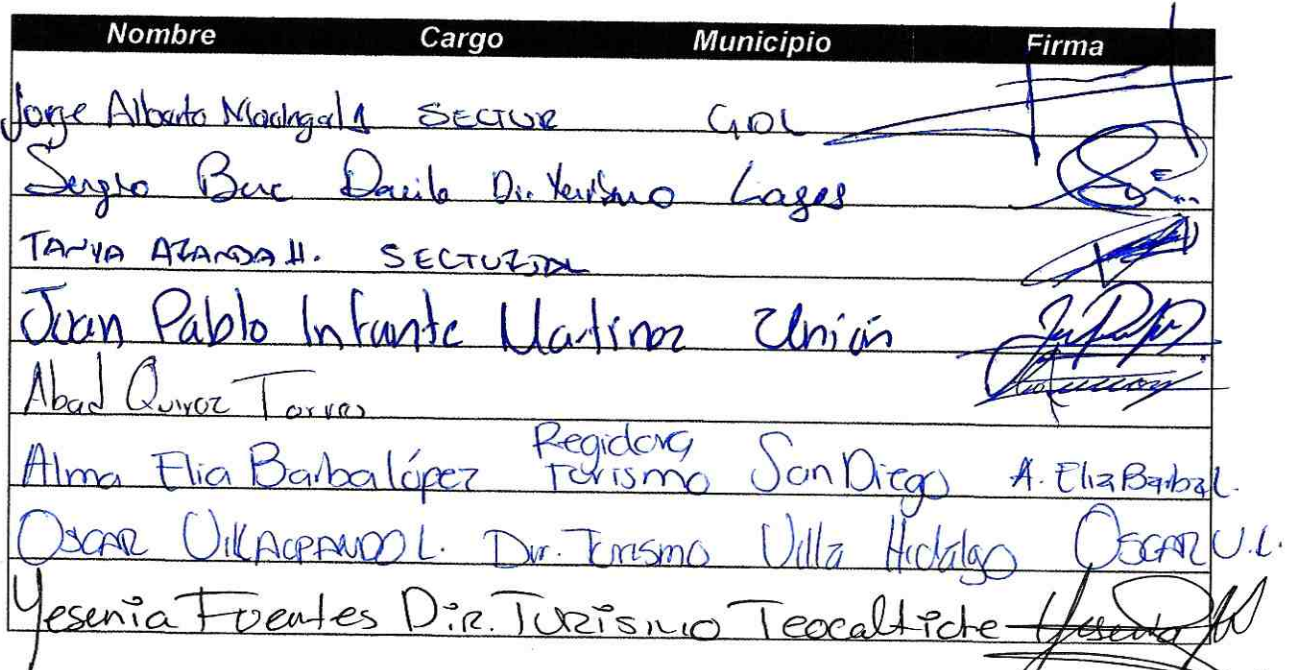 Nombre Cargo Municipio Firma
Jorge Alberto Madrigal SECTUR GDL
Sergio Davila Dir. Turismo Lagos
TANYA H.
Juan Pablo Infante Martinez Unión
Abad Quiroz Torres
Alma Elia Barba López Regidora Turismo San Diego A. Elia Barba L.
OSCAR VILLALPANDO L. Dir. Turismo Villa Hidalgo OSCAR V.L.
Yesenia Fuentes Dir. TURISMO Teocaltiche Yesenia